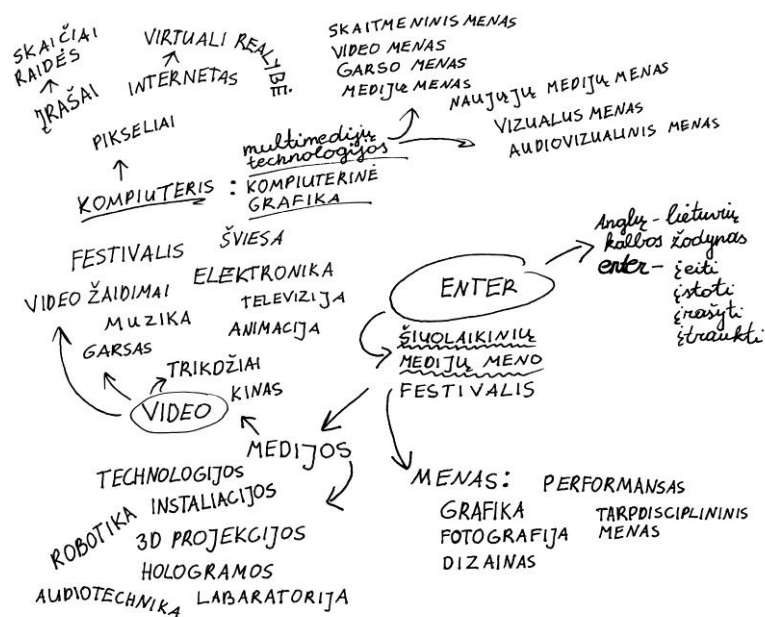 SKAIČIAI
RAIDĖS
ĮRAŠAI
VIRTUALI REALYBĖ
INTERNETAS
PIKSELIAI
KOMPIUTERIS :
multimedijų
technologijos
KOMPIUTERINĖ
GRAFIKA
SKAITMENINIS MENAS
VIDEO MENAS
GARSO MENAS
MEDIJŲ MENAS
NAUJŲJŲ MEDIJŲ MENAS
VIZUALUS MENAS
AUDIOVIZUALINIS MENAS
FESTIVALIS
ŠVIESA
ELEKTRONIKA
VIDEO ŽAIDIMAI
TELEVIZIJA
MUZIKA
ANIMACIJA
GARSAS
TRIKDŽIAI
KINAS
VIDEO
ENTER
Anglų - lietuvių
kalbos žodynas
enter - įeiti
įstoti
įrašyti
įtraukti
ŠIUOLAIKINIŲ
MEDIJŲ MENO
FESTIVALIS
MEDIJOS
TECHNOLOGIJOS
ROBOTIKA
INSTALIACIJOS
3D PROJEKCIJOS
HOLOGRAMOS
AUDIOTECHNIKA
LABARATORIJA
MENAS:
PERFORMANSAS
GRAFIKA
TARPDISCIPLININIS
MENAS
FOTOGRAFIJA
DIZAINAS